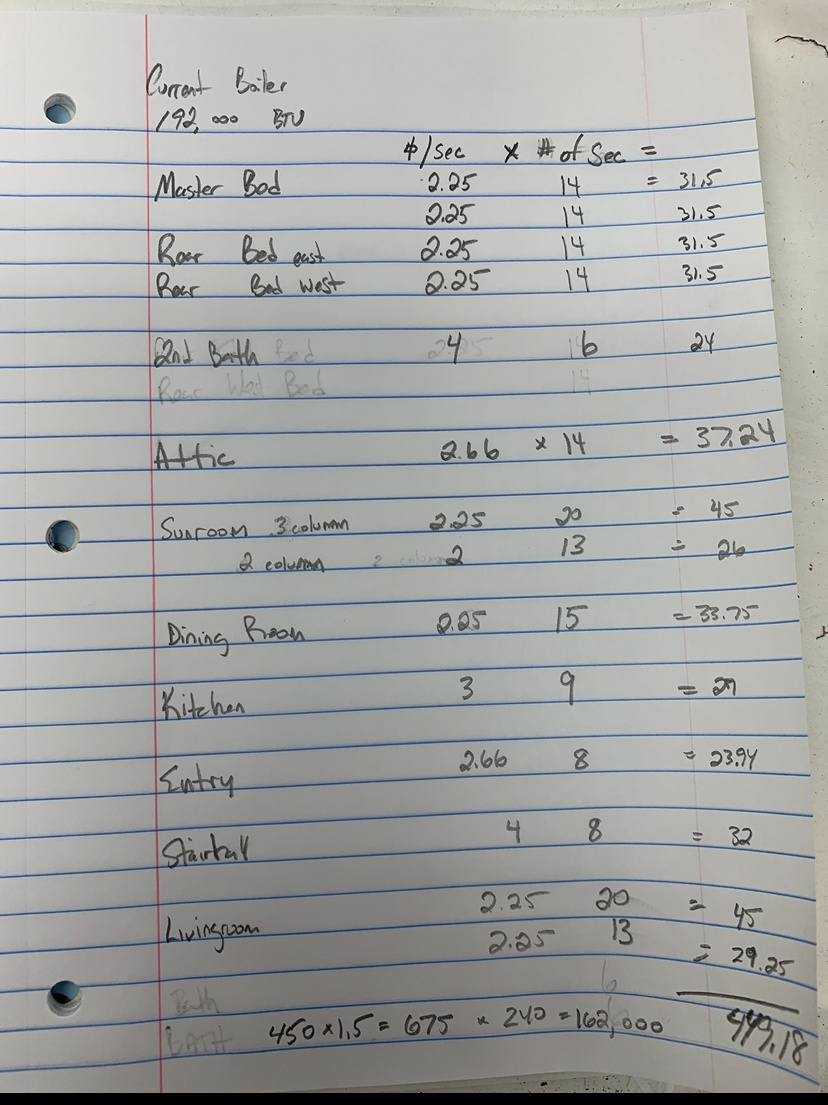 Current Boiler
192,000 BTU
ф/sec x # of Sec =
Master Bed 2.25 14 = 31.5
2.25 14 31.5
Rear Bed east 2.25 14 31.5
Rear Bed west 2.25 14 31.5
2nd Bath 4 6 24
Rear West Bed 14
Attic 2.66 x 14 = 37.24
Sunroom 3 column 2.25 20 = 45
2 column 2 13 = 26
Dining Room 2.25 15 = 33.75
Kitchen 3 9 = 27
Entry 2.66 8 = 23.94
Stairhall 4 8 = 32
2.25 20 = 45
Livingroom 2.25 13 = 29.25
Bath 6
BATH 450 x 1.5 = 675 x 240 = 162,000 449.18